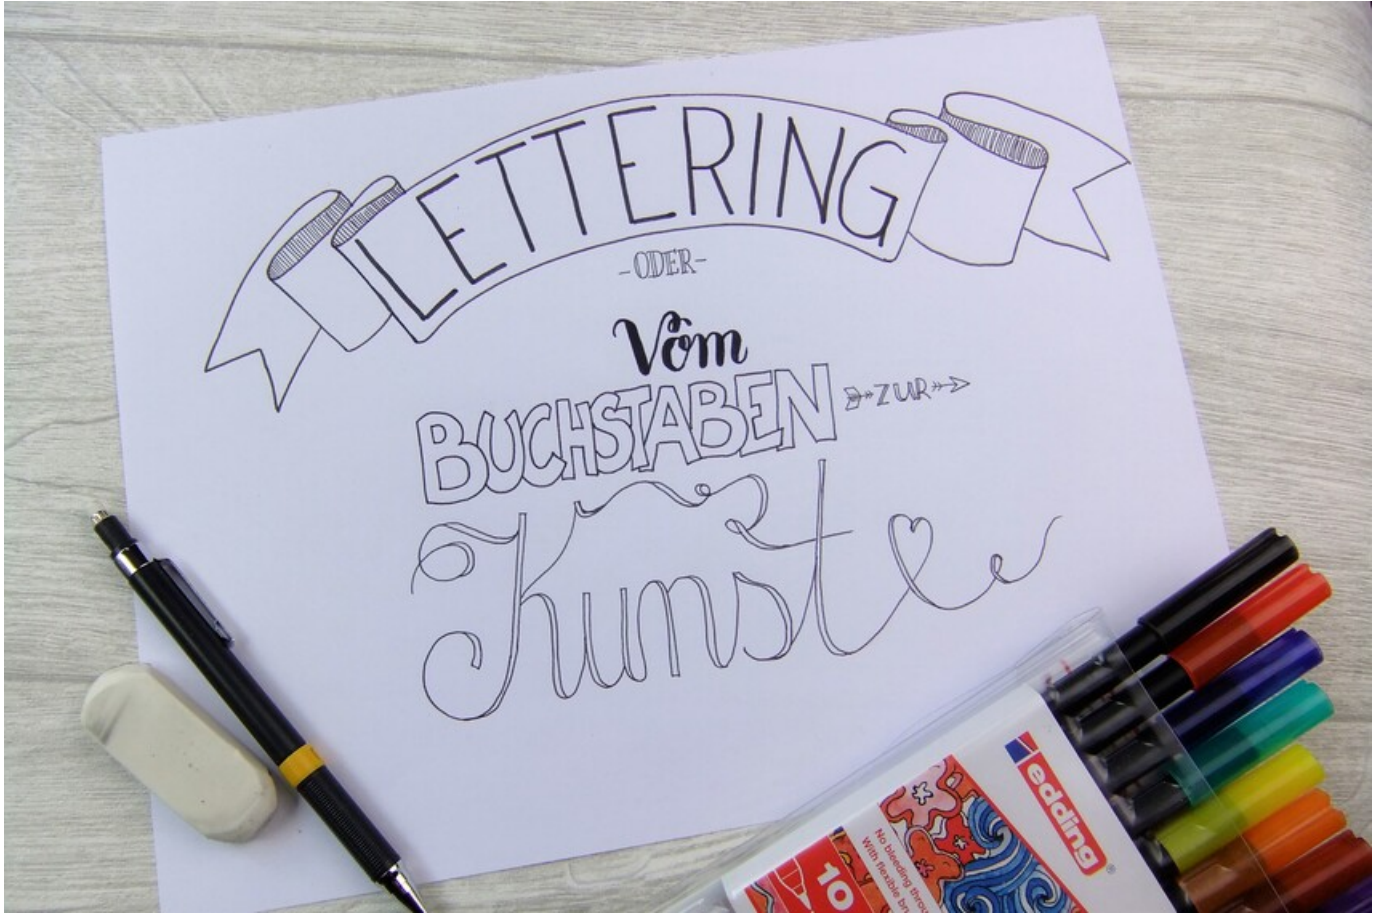 LETTERING
-ODER-
Vom
BUCHSTABEN ZUR
Kunst
edding®
10
No bleeding throu
With flexible br